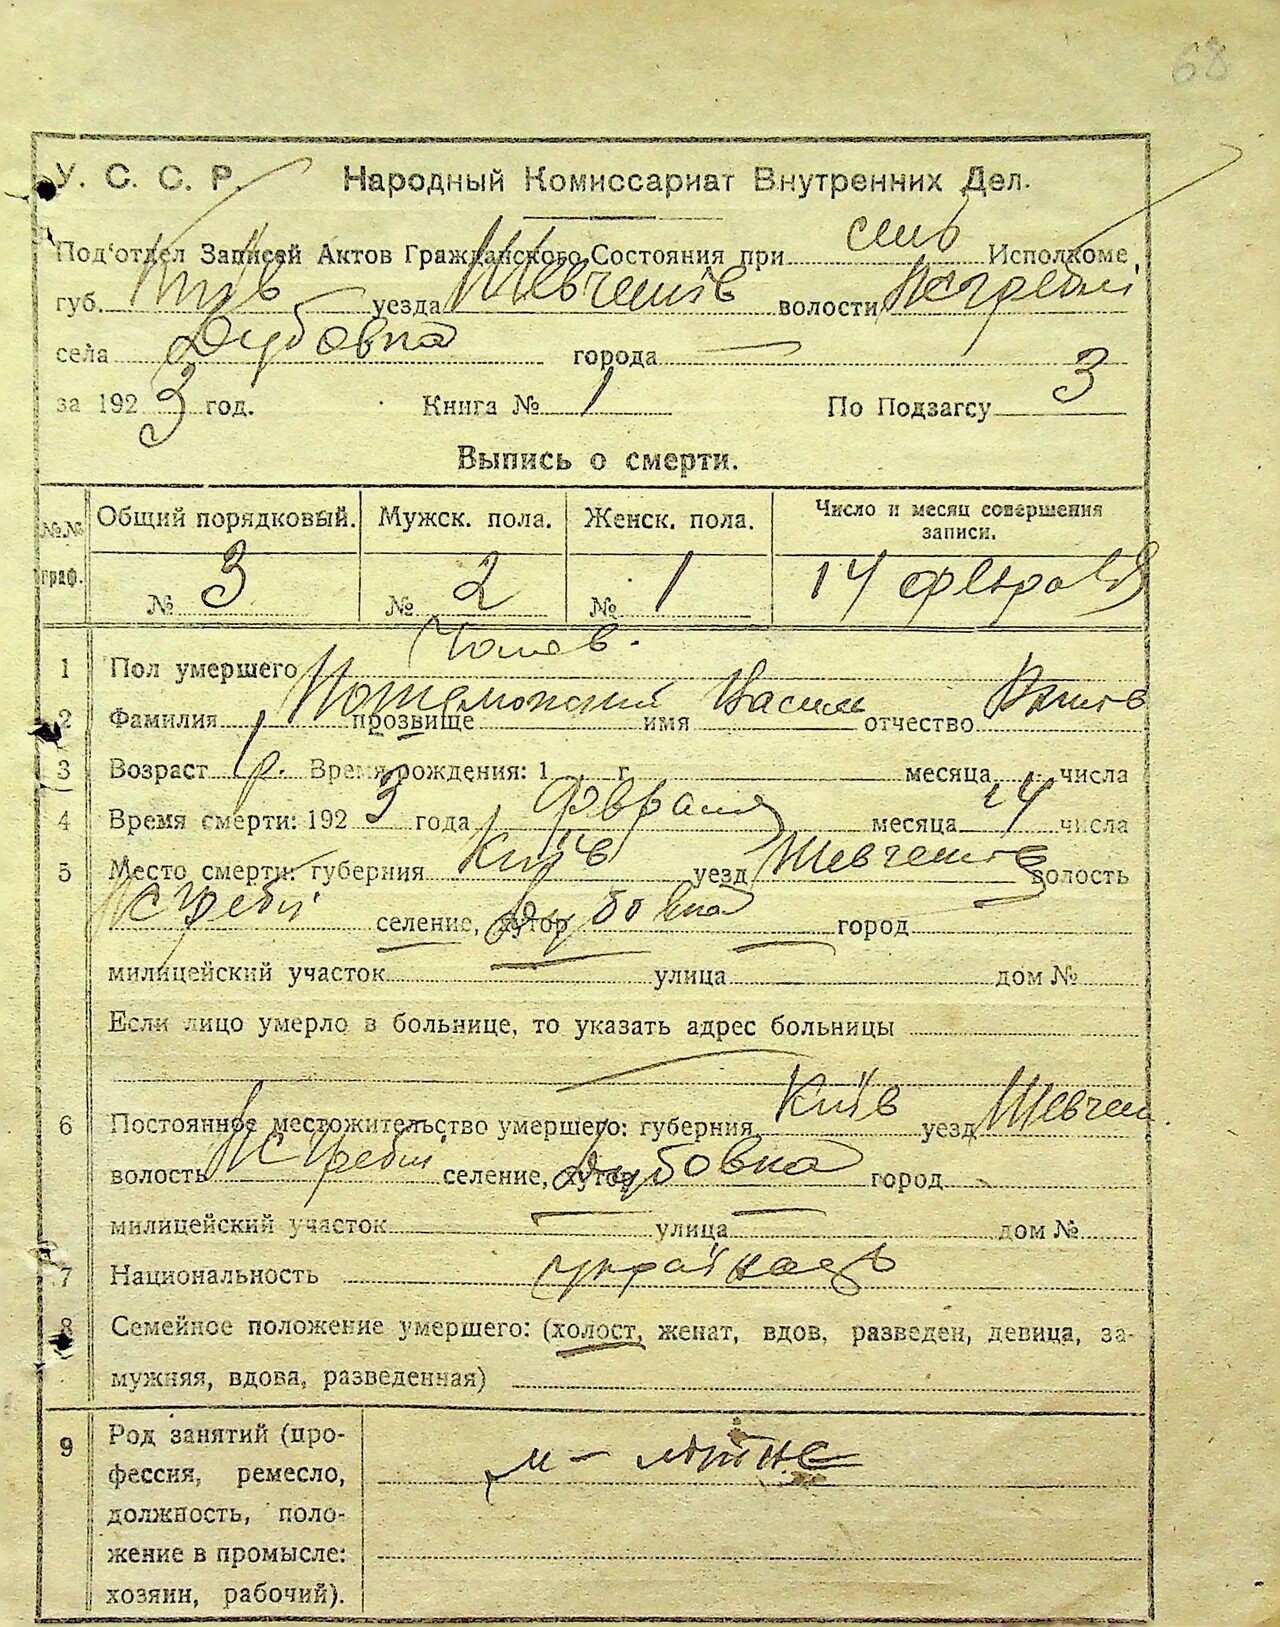 68
У. С. С. Р. Народный Комиссариат Внутренних Дел.
Под'отдел Записей Актов Гражданского Состояния при Исполкоме,
губ. Київ уезда Шевченків волости
села Дубовка города —
за 1923 год. Книга № 1 По Подзагсу 3
Выпись о смерти.
№№ граф. Общий порядковый. Мужск. пола. Женск. пола. Число и месяц совершения записи.
№ 3 № 2 № 1 14 февраля
1 Пол умершего
2 Фамилия прозвище имя Василь отчество
3 Возраст 1 р. Время рождения: 1 г. месяца числа
4 Время смерти: 1923 года Февраля месяца 14 числа
5 Место смерти: губерния Київ уезд Шевченків волость
селение, хутор Дубовка город
милицейский участок улица дом №
Если лицо умерло в больнице, то указать адрес больницы
6 Постоянное местожительство умершего: губерния Київ уезд Шевчен
волость селение, хутор Дубовка город
милицейский участок — улица — дом №
7 Национальность українець
8 Семейное положение умершего: (холост, женат, вдов, разведен, девица, за-
мужняя, вдова, разведенная)
9 Род занятий (про-
фессия, ремесло,
должность, поло-
жение в промысле:
хозяин, рабочий).